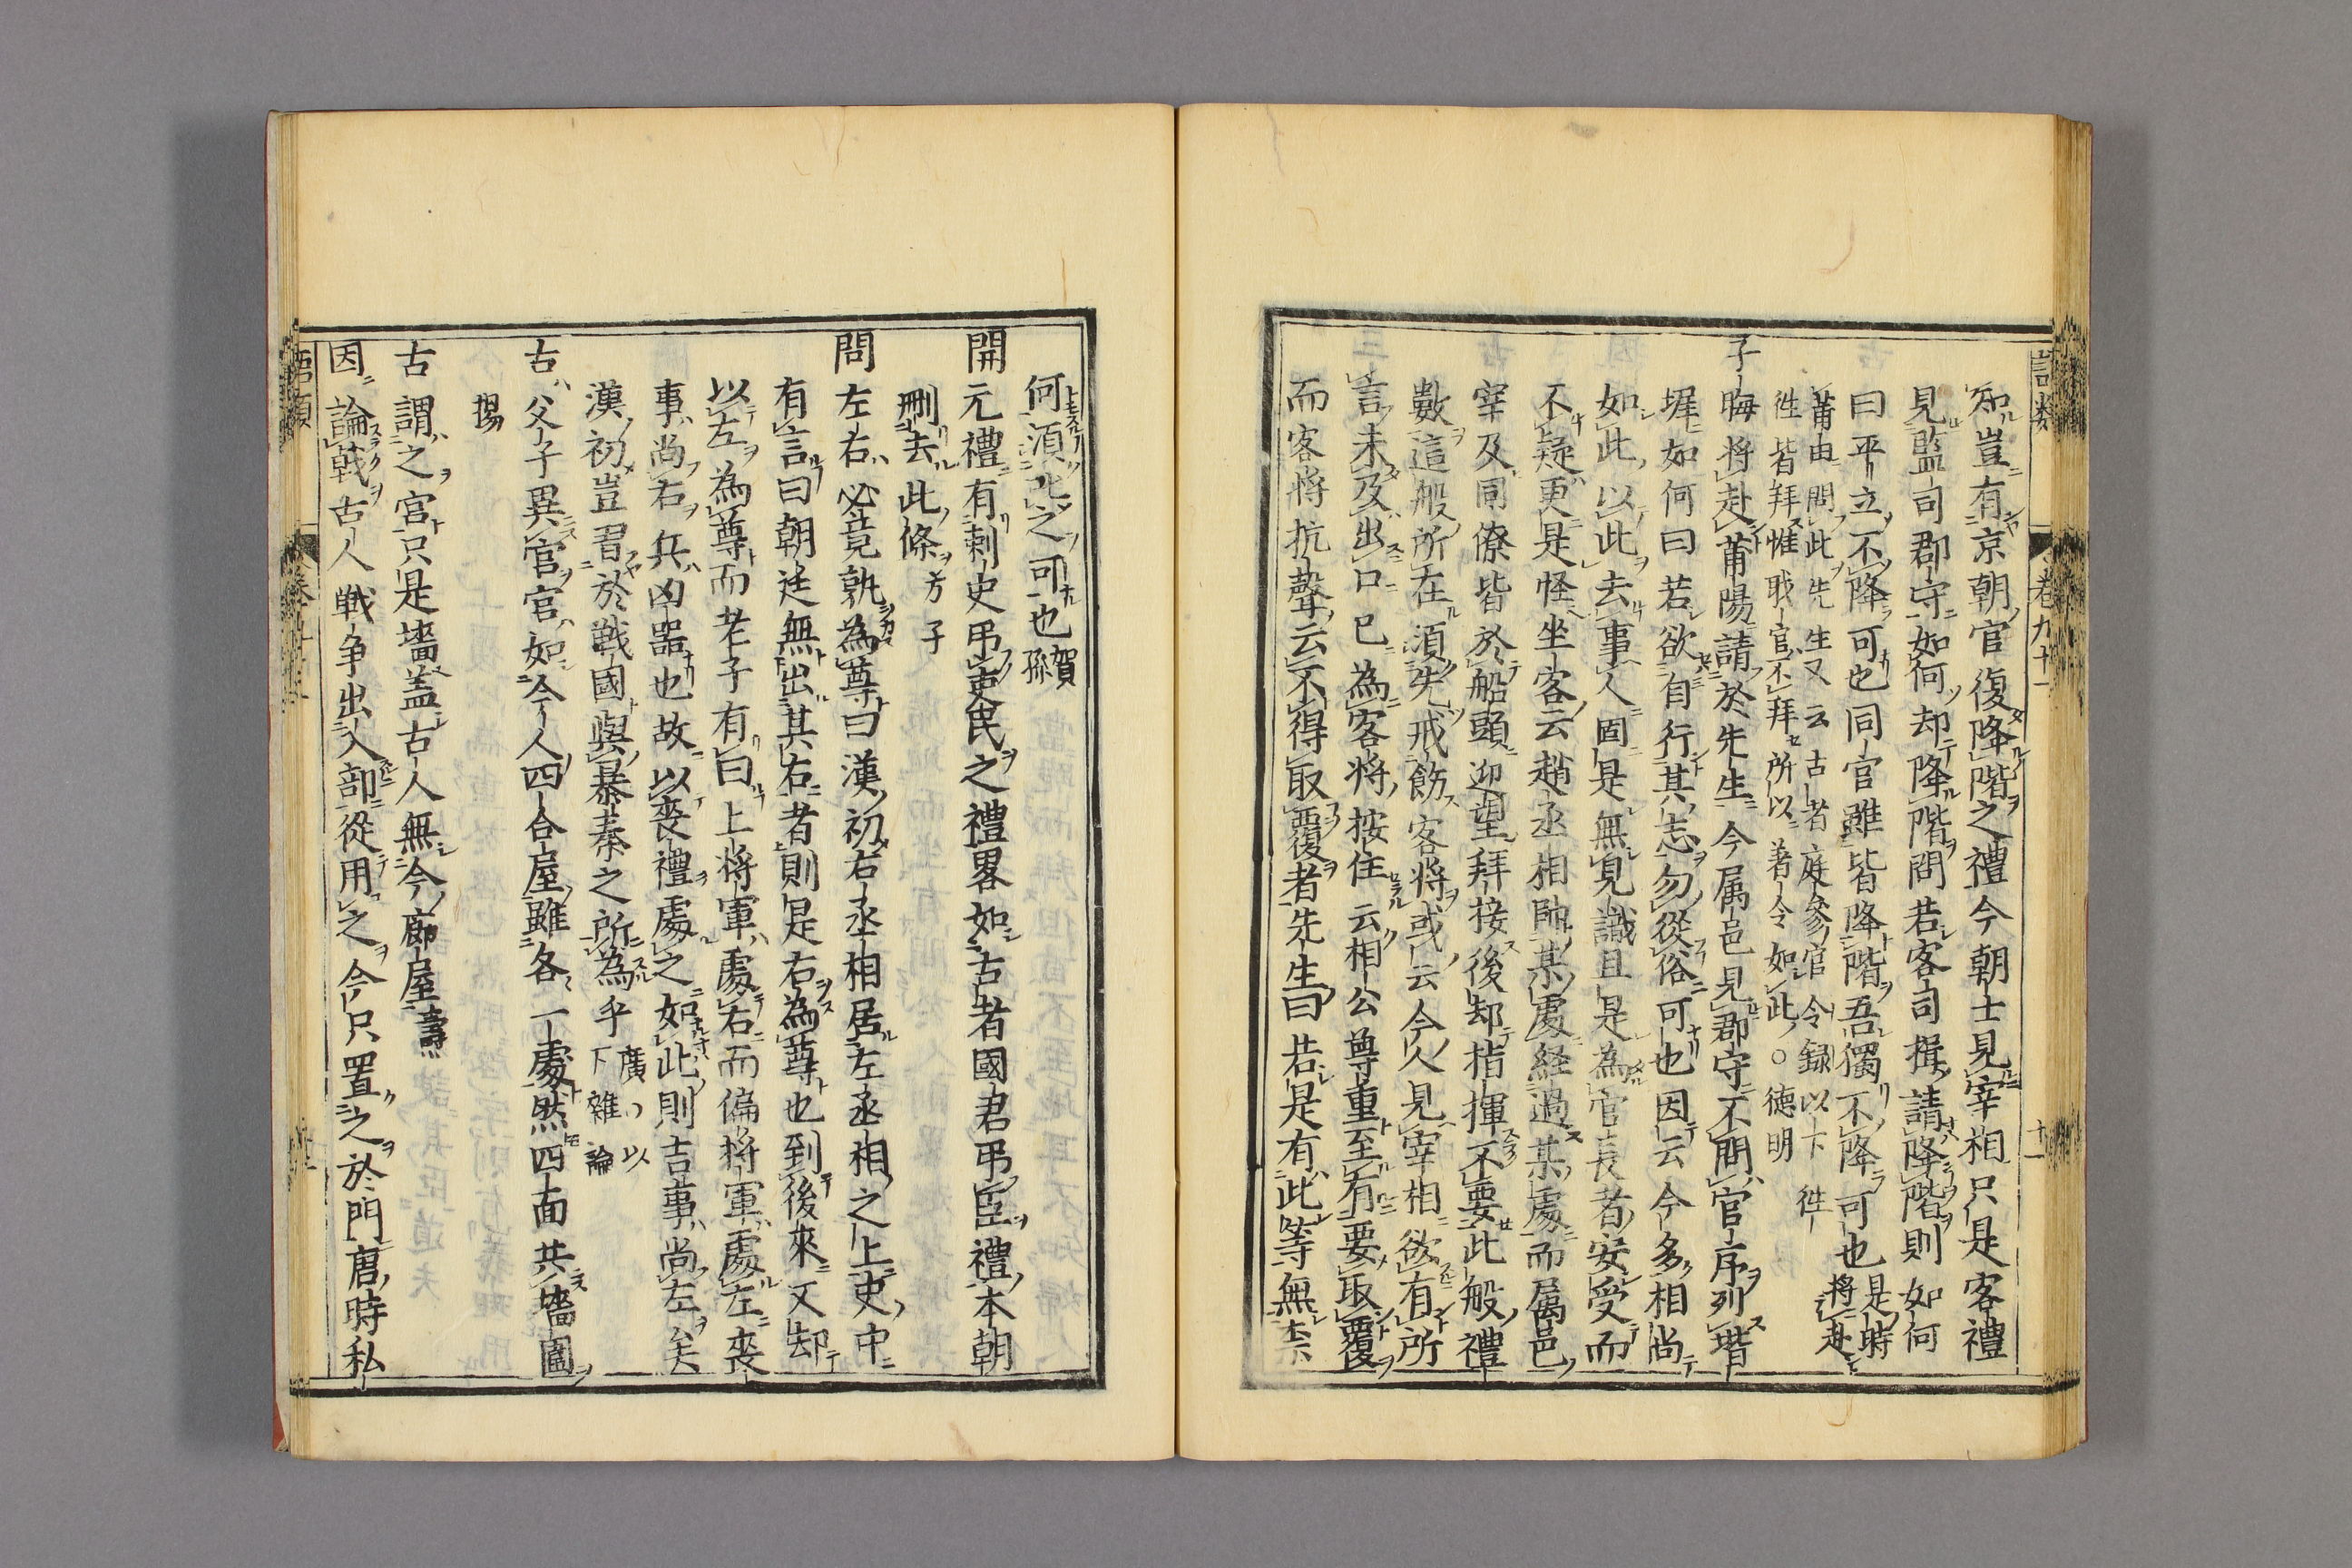 語類
卷九十一
十一
知豈有京朝官復降階之禮今朝士見宰相只是客禮
見監司郡守如何却降階問若客司揖請降階則如何
曰平立不降可也同官雖皆降階吾獨不降可也是時將赴
莆田問此先生又云古者庭參官令録以下往
往皆拜惟職官不拜所以著令如此○德明
子晦將赴莆陽請於先生今属邑見郡守不問官序列堦
墀如何曰若欲自行其志勿從俗可也因云今多相尚
如此以此去事人固是無見識且是為官長者安受而
不疑更是怪坐客云趙丞相帥某處経過某處而属邑
宰及同僚皆於船頭迎望拜接後却指揮不要此般禮
數這般所在須先戒飭客將或云今人見宰相欲有所
言未及出口已為客將按住云相公尊重至有要取覆
而客將抗聲云不得取覆者先生曰若是有此等無奈
何須叱之可也賀孫
開元禮有刺史弔吏民之禮畧如古者國君弔臣禮本朝
刪去此條方子
問左右必竟孰為尊曰漢初右丞相居左丞相之上史中
有言曰朝廷無出其右者則是右為尊也到後來又却
以左為尊而老子有曰上將軍處右而偏將軍處左喪
事尚右兵凶噐也故以喪禮處之如此則吉事尚左矣
漢初豈習於戰國與暴秦之所為乎廣以下雜論
古父子異宮宮如今人四合屋雖各一處然四面共墻圍
揚
古謂之宮只是墻蓋古人無今廊屋燾
因論戟古人戰争出入部從用之今只置之於門唐時私
語類